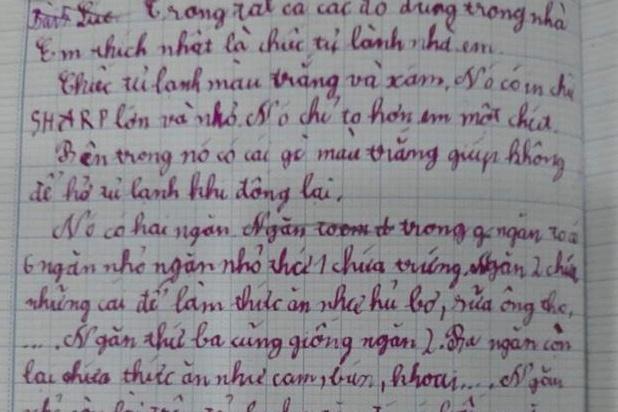 Trong tất cả các đồ dùng trong nhà
Em thích nhất là chiếc tủ lành nhà em.
Chiếc tủ lanh màu trắng và xám. Nó có in chữ
SHARP lớn và nhỏ. Nó chỉ to hơn em một chút.
Bên trong nó có cái gờ màu trắng giúp không
để hở tủ lanh khi đông lai.
Nó có hai ngăn. Ngăn trong ngăn
6 ngăn nhỏ ngăn nhỏ thứ 1 chứa trứng. Ngăn 2 chứa
những cái để làm thức ăn như hủ bơ, sữa ông thọ,
.... Ngăn thứ ba cũng giống ngăn 2. Ba ngăn còn
lai chứa thức ăn như cam, bún, khoai.... Ngăn